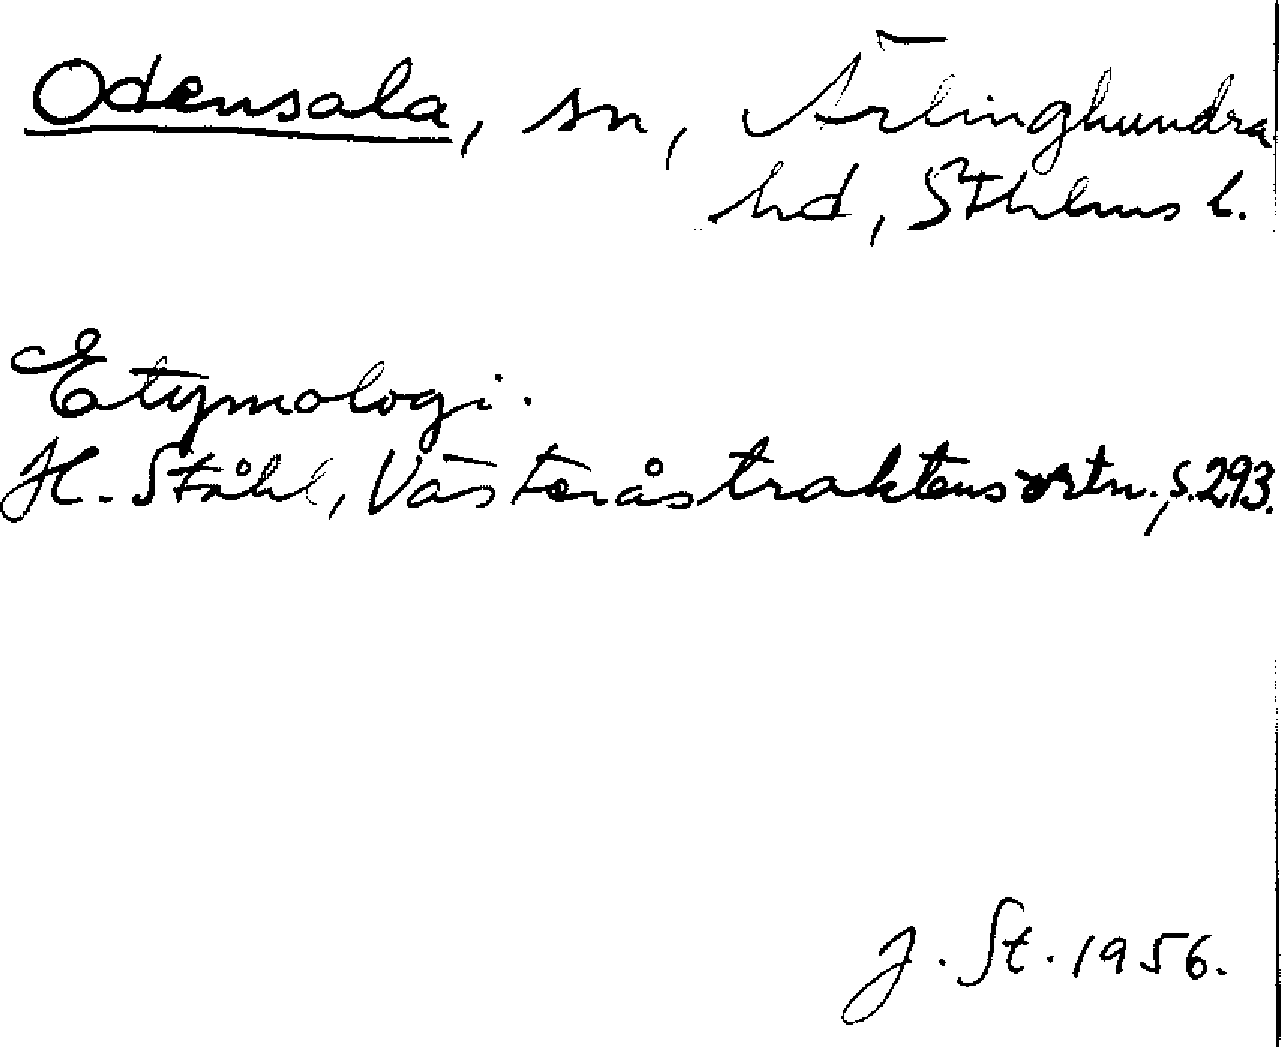 Odensala, sn, Ärlinghundra
hd, Sthlms l.
Etymologi.
H. Ståhl, Västeråstraktens ortn., s. 293.
J. St. 1956.